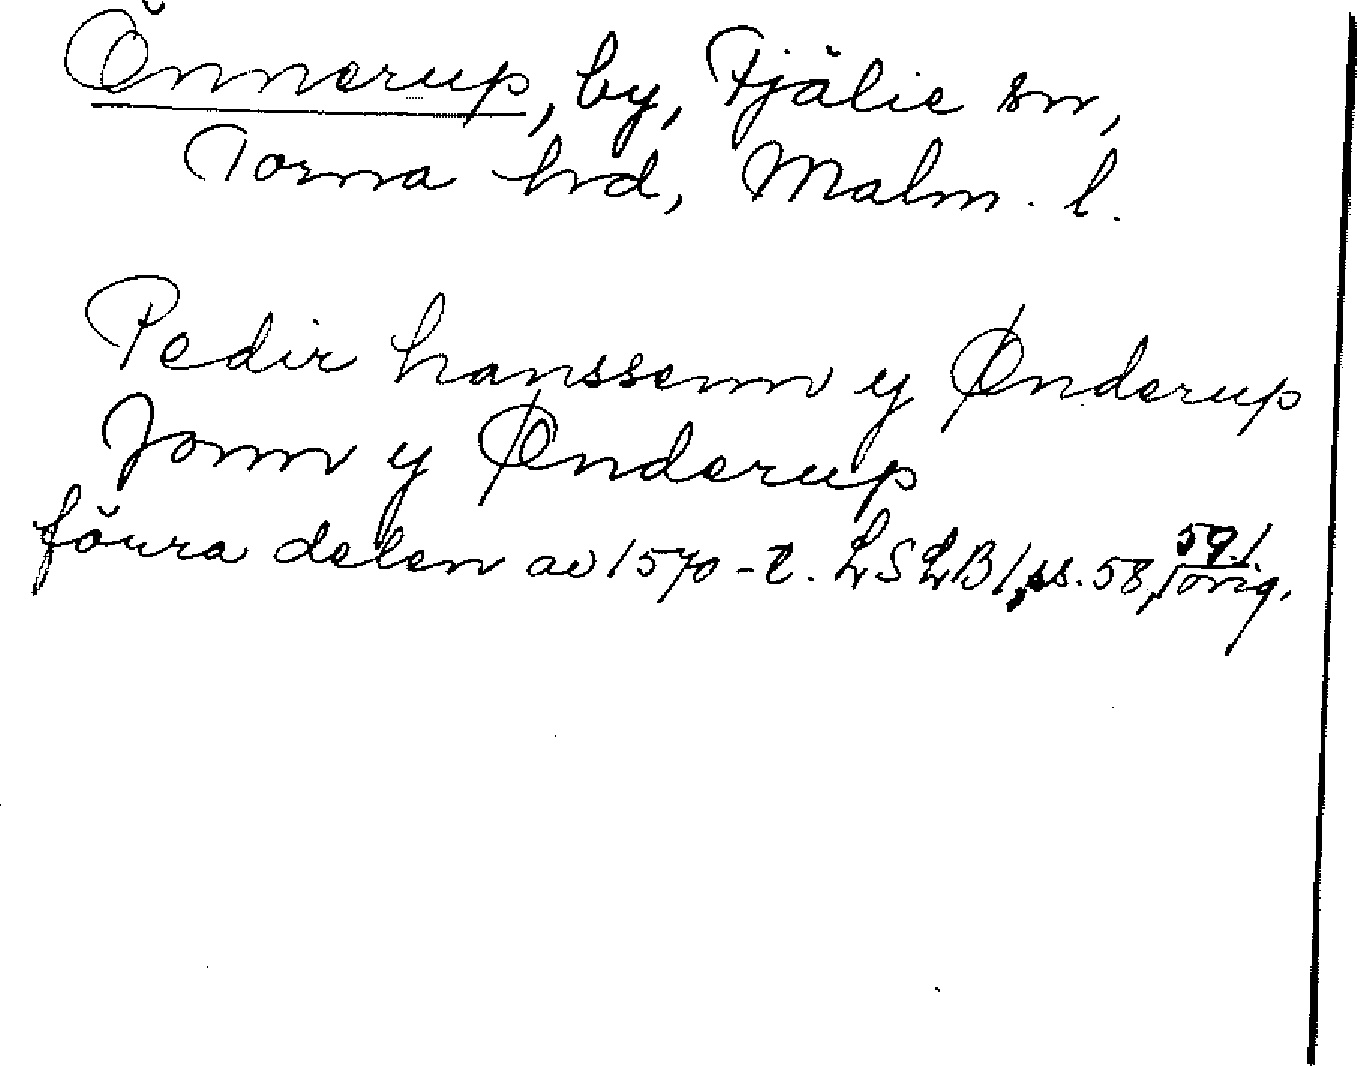 Önnerup, by, Fjälie sn,
Torna hrd, Malm. l.
Pedir hanssenn y Ønderup
Jonn y Ønderup
förra delen av 1570-t. LSLB 1, ss. 58, 59. orig.